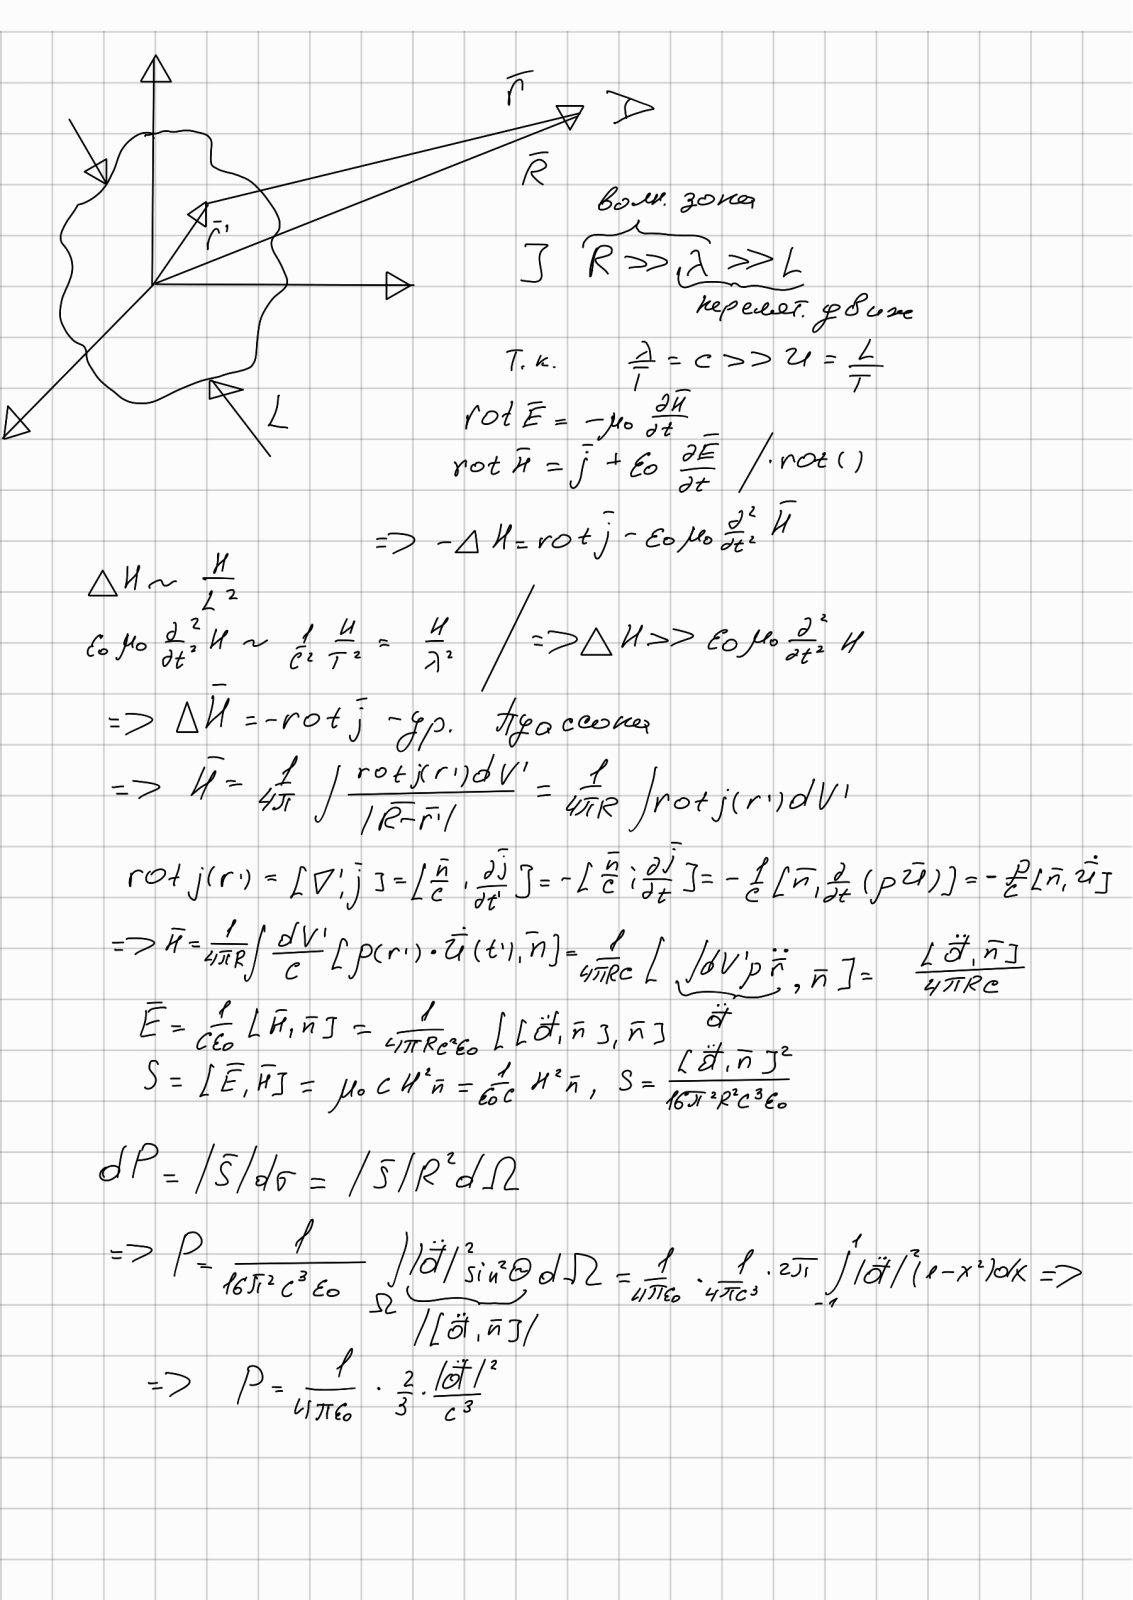 r̄
R̄
r̄'
L
волн. зона
] R >> λ >> L
нерелят. движ
т.к. λ/T = c >> u = L/T
rot Ē = -μ₀ ∂H̄/∂t
rot H̄ = j̄ + ε₀ ∂Ē/∂t / · rot()
=> -ΔH = rot j̄ - ε₀μ₀ ∂²/∂t² H̄
ΔH ~ H/L²
ε₀μ₀ ∂²/∂t² H ~ 1/c² H/T² = H/λ² / => ΔH >> ε₀μ₀ ∂²/∂t² H
=> ΔH̄ = -rot j̄ - ур. Пуассона
=> H̄ = 1/4π ∫ rot j(r')dV' / |R̄-r̄'| = 1/4πR ∫ rot j(r')dV'
rot j(r') = [∇', j̄] = [n̄/c, ∂j̄/∂t'] = -[n̄/c ; ∂j̄/∂t] = -1/c [n̄, ∂/∂t (ρū)] = -ρ/c [n̄, u̇̄]
=> H̄ = 1/4πR ∫ dV'/c [ρ(r')·u̇̄(t'), n̄] = 1/4πRc [∫dV'ρ r̈̄, n̄] = [d̈̄, n̄]/4πRc
d̈̄
Ē = 1/cε₀ [H̄, n̄] = 1/4πRc²ε₀ [[d̈̄, n̄], n̄]
S̄ = [Ē, H̄] = μ₀ c H² n̄ = 1/ε₀c H² n̄, S = [d̈̄, n̄]²/16π²R²c³ε₀
dP = |S̄|dσ = |S̄|R²dΩ
=> P = 1/16π²c³ε₀ ∫_Ω |d̈̄|² sin²Θ dΩ = 1/4πε₀ · 1/4πc³ · 2π ∫_{-1}^{1} |d̈̄|²(1-x²)dx =>
|[d̈̄, n̄]|
=> P = 1/4πε₀ · 2/3 · |d̈̄|²/c³